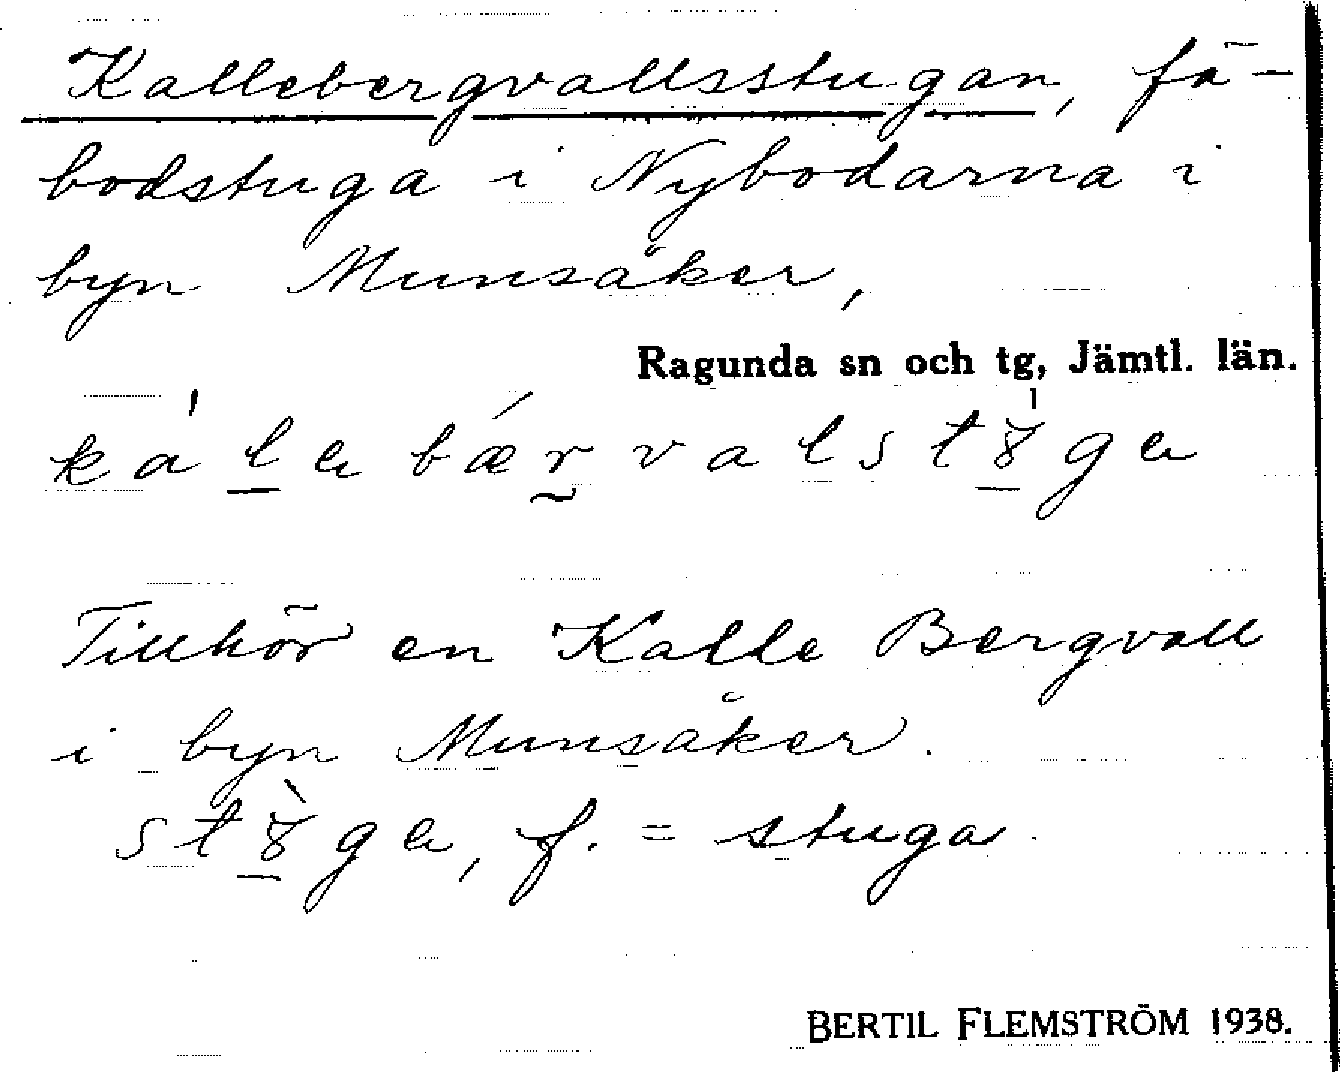 Kallebergvallsstugan, fä-
bodstuga i Nybodarna i
byn Munsåker,
Ragunda sn och tg, Jämtl. län.
Tillhör en Kalle Bergvall
i byn Munsåker.
f. = stuga
BERTIL FLEMSTRÖM 1938.